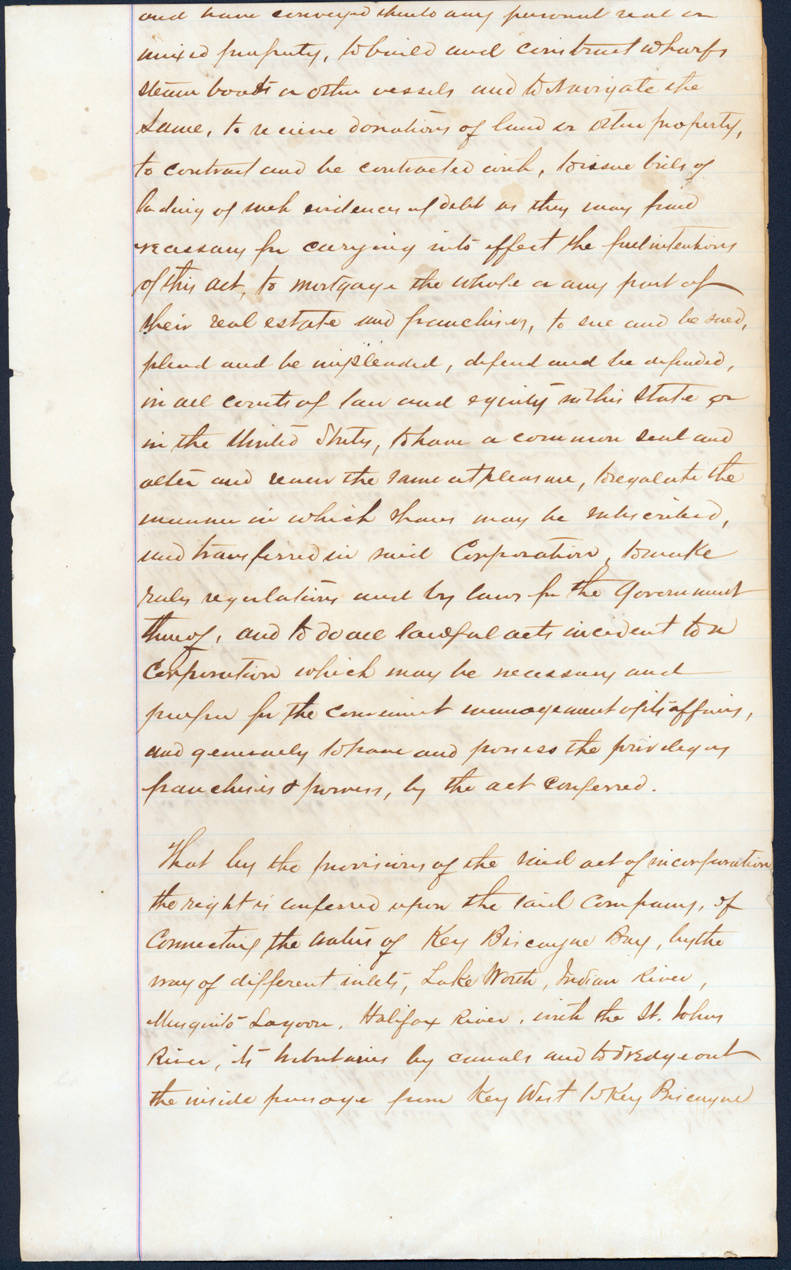 and have conveyed them to any personal real or
mixed property, to build and construct wharfs
steam boats or other vessels and to navigate the
Same, to recieve donations of land or other property,
to contract and be contracted with, to issue bills of
lading of such evidences of debt as they may find
necessary for carrying into effect the full intentions
of this act, to mortgage the whole or any part of
their real estate and franchises, to sue and be sued,
plead and be impleaded, defend and be defended,
in all courts of law and equity in this State or
in the United States, to have a common seal and
alter and renew the same at pleasure, to regulate the
manner in which shares may be subscribed,
and transferred in said Corporation, to make
rules regulations and by laws for the Government
thereof, and to do all lawful acts incedent to a
Corporation which may be necessary and
proper for the convenient management of its affairs,
and generally to have and possess the privileges
franchises & powers, by the act conferred.
That by the provisions of the said act of incorporation
the right is conferred upon the said Company, of
Connecting the waters of Key Biscayne Bay, by the
way of different inlets, Lake Worth, Indian River,
Musquito Lagoon, Halifax River, with the St. Johns
River, its tributaries by canals and to dredge out
the inside passage from Key West to Key Biscayne